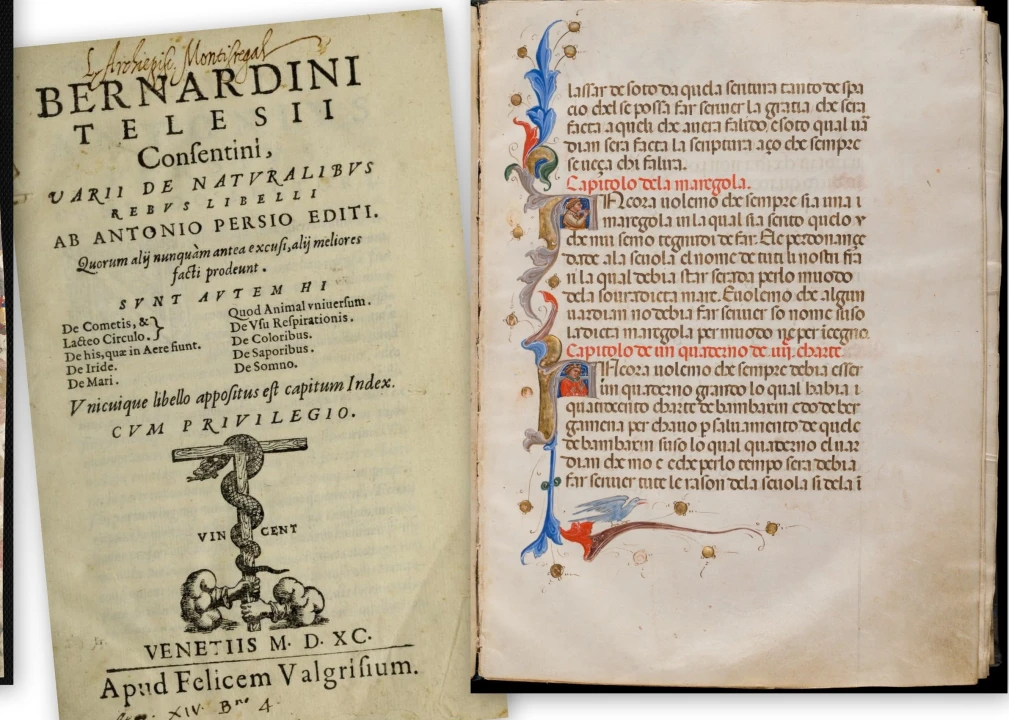 L. Archiepiſc. Montiſregal
BERNARDINI
TELESII
Conſentini,
VARII DE NATVRALIBVS
REBVS LIBELLI
AB ANTONIO PERSIO EDITI.
Quorum alij nunquàm antea excuſi, alij meliores
facti prodeunt.
SVNT AVTEM HI
De Cometis, &}
Lacteo Circulo.}
De his, quæ in Aere fiunt.
De Iride.
De Mari.
Quod Animal vniuerſum.
De Vſu Reſpirationis.
De Coloribus.
De Saporibus.
De Somno.
Vnicuique libello appoſitus eſt capitum Index.
CVM PRIVILEGIO.
VIN CENT
VENETIIS M. D. XC.
Apud Felicem Valgriſium.
XIV. 4
laſſar de ſoto da quela ſentura tanto de ſpa
cio chel ſe poſſa far ſcriuer la gratia che ſera
facta a queli che auera falido, e ſoto qual uã
dian ſera facta la ſcriptura aço che ſempre
ſe ueça chi falira.
Capitolo dela mariegola.
ANcora uolemo che ſempre ſia una i
mariegola in la qual ſia ſcrito quelo
che nui ſemo tegnudi de far. E le perdonançe
date ala ſcuola el nome de tuti li noſtri fra
ri la qual debia ſtar ſerada per lo muodo
dela ſouradicta mare. E uolemo che algun
uardian no debia far ſcriuer ſo nome ſuſo
la dicta mariegola per muodo ne per ĩcegno.
Capitolo de un quaterno de .iiij. charte
ANcora uolemo che ſempre debia eſſer
un quaterno grando lo qual habia i
quatrocento charte de bambaxin e do de ber
gamena per chauo p ſaluamento de quele
de bambaxin ſuſo lo qual quaterno el uar
dian che mo e e che per lo tempo ſera debia
far ſcriuer tute le raſon dela ſcuola ſi dela ĩ